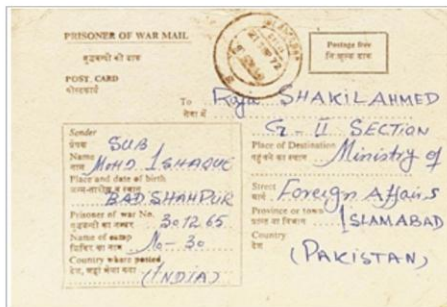 PRISONER OF WAR MAIL
युद्धबन्दी की डाक
POST CARD
पोस्टकार्ड
Postage free
नि:शुल्क डाक
To Raja SHAKIL AHMED
सेवा में
G-II SECTION
Place of Destination Ministry of
पहुंचने का स्थान
Street Foreign Affairs
Province or town ISLAMABAD
Country
देश
(PAKISTAN)
Sender
प्रेषक SUB
Name
नाम MOHD ISHAQUE
Place and date of birth
BADSHAHPUR
Prisoner of war No.
युद्धबन्दी का नम्बर 301265
Name of camp
शिविर का नाम No-30
Country where posted
देश, जहां भेजा गया
(INDIA)